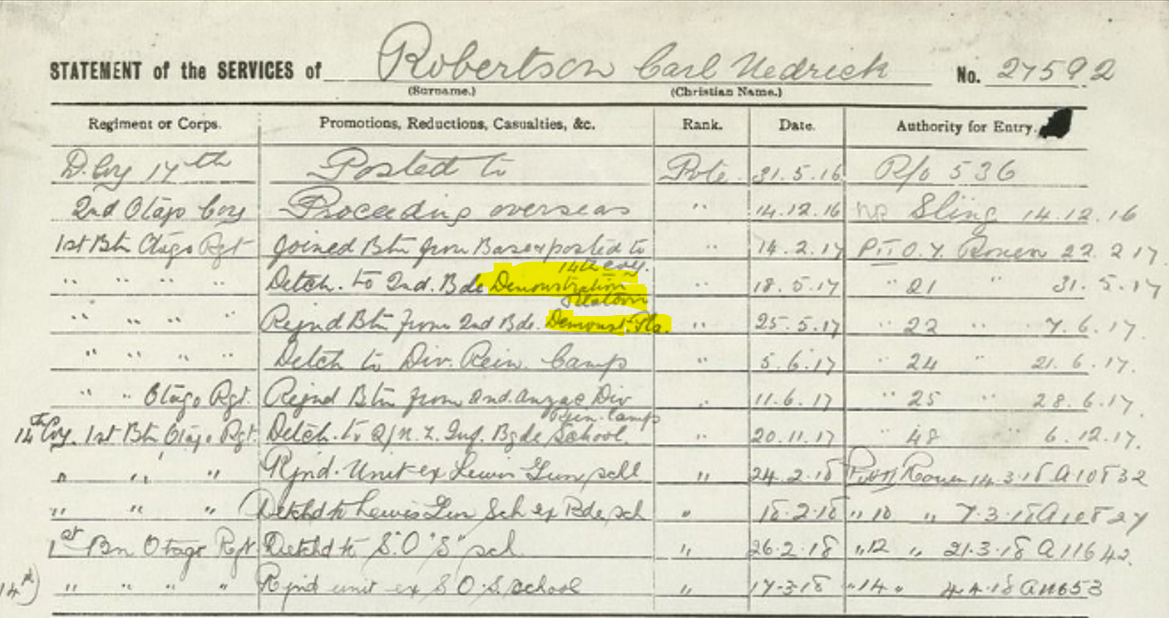 STATEMENT of the SERVICES of Robertson Carl Nedrick No. 27592
(Surname.) (Christian Name.)
Regiment or Corps. Promotions, Reductions, Casualties, &c. Rank. Date. Authority for Entry.
D. Coy 17th Posted to Pvte. 31.5.16 R/o 536
2nd Otago Coy Proceeding overseas " 14.12.16 Sling 14.12.16
1st Btn Otago Rgt Joined Btn from Base & posted to " 14.2.17 O.Y. Rouen 22.2.17
14th Coy.
" " " Detch. to 2nd. Bde Demonstration " 18.5.17 " 21 31.5.17
Platoon
" " " " Rejnd Btn from 2nd Bde. Demonst. Pla. " 25.5.17 " 22 " 7.6.17.
" " " " Detch to Div. Rein. Camp " 5.6.17 " 24 " 21.6.17.
" " Otago Rgt. Rejnd Btn from 2nd. Anzac Div " 11.6.17 " 25 " 28.6.17.
Rein. Camp
14th Coy. 1st Btn Otago Rgt. Detch. to N.Z. Inf. Bgde School. " 20.11.17 " 48 " 6.12.17.
" " " Rjnd. Unit ex Lewis Gun scll " 24.2.18 Rouen 14.3.18 A10832
" " " Detchd to Lewis Gun Sch ex Bde. sch " 18.2.18 " 10 " 7.3.18 A10827
1st Bn Otago Rgt Detchd to S.O"S" sch. " 26.2.18 " 12 " 21.3.18 A11642.
14th) " " " " Rjnd unit ex S.O.S. school " 17.3.18 " 14 " 4.4.18 A11653